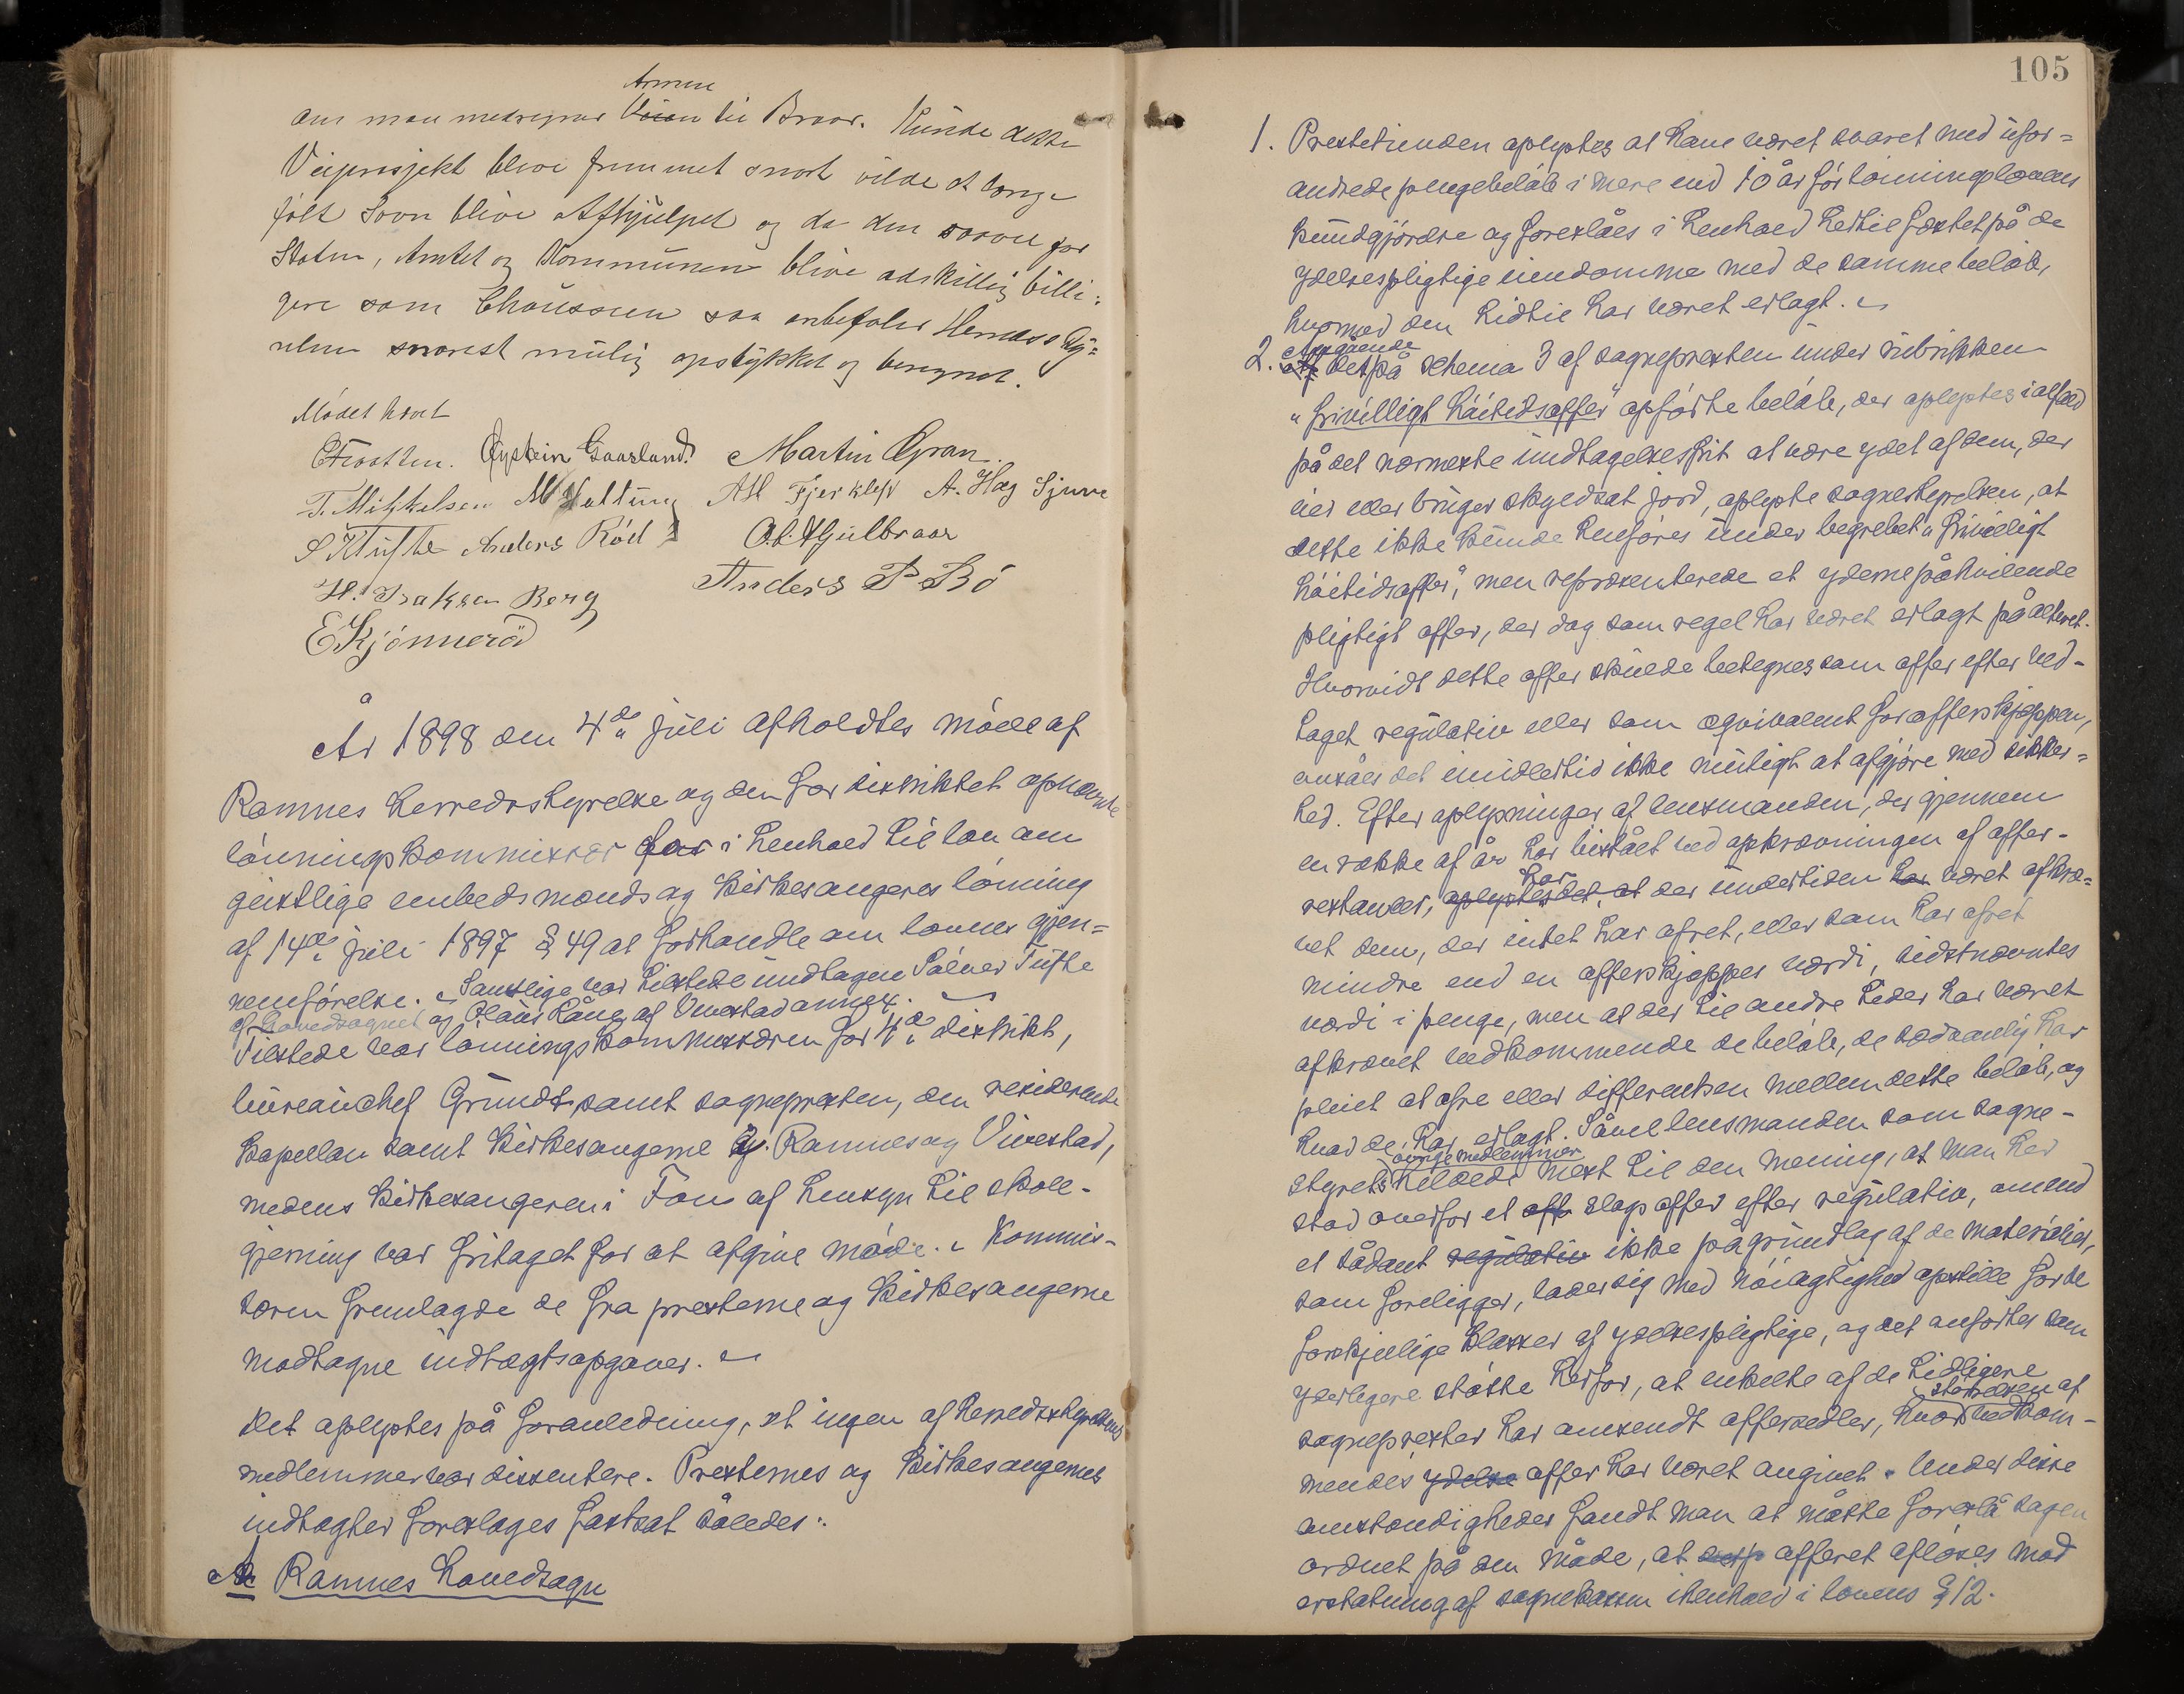 Armen
om man medregner Veien til Braar. Kunde dette
Veiprosjekt blive fremmet snart vilde et længe
følt Savn blive Afhjulpet og da den saavel for
Staten, Amtet og Kommunen blive adskillig billi=
gere som Chausseen saa anbefaler Herredssty=
relsen snarest mulig opstykket og beregnet.
Mødet hævet
Øystein Gaarland. Martin Gran.
T. Mikkelsen A. Hag Sjuve
Anders Röd O. A. Hjulbraar
H. Isaksen Berg Anders P Bö
E Kjönneröd
År 1898 den 4de juli afholdtes möde af
Ramnes herredsstyrelse og den for distriktet opnævnte
lönningskommissær for i henhold til lov om
geistlige embedsmænds og kirkesangeres lönning
af 14de juli 1897 § 49 at forhandle om lovens gjen=
nemförelse. Samtlige var tilstede undtagen Sölver Tufte
af hovedsognet og Olaus Lång af Vivestad annex.
Tilstede var lönningskommissæren for 4de distrikt,
bureauchef Grundt samt sognepresten, den residerende
kapellan samt kirkesangerne i Ramnes og Vivestad,
medens kirkesangeren i Fon af hensyn til skole-
gjerning var fritaget for at afgive möde. Kommis-
særen fremlagde de fra presterne og kirkesangerne
modtagne indtægtsopgaver.
Det oplystes på foranledning, at ingen af herredsstyrelsens
medlemmer var dissentere. Presternes og kirkesangernes
indtægter foreslages fastsat således:
A Ramnes hovedsogn
105
1. Prestetienden oplystes at have været svaret med ufor=
andrede pengebelöb i mere end 10 år för lönningslovens
kundgjörelse og foreslåes i henhold hertil fæstet på de
ydelsespligtige eiendomme med de samme belöb,
hvormed den hidtil har været erlagt.
Angående
2. det på schema 3 af sognepresten under rubrikken
"frivilligt höitidsoffer" opförte belöb, der oplystes ialfald
på det nærmeste undtagelsesfrit at være ydet af dem, der
eier eller bruger skyldsat jord, oplyste sognestyrelsen, at
dette ikke kunde henföres under begrebet "frivilligt
höitidsoffer", men repræsenterede et yderne påhvilende
pligtigt offer, der dog som regel har været erlagt på alteret.
Hvorvidt dette offer skulde betegnes som offer efter ved-
taget regulativ eller som æqvivalent for offerskjæppen,
ansåes det imidlertid ikke muligt at afgjöre med sikker=
hed. Efter oplysninger af lensmanden, der gjennem
en række af år har bistået ved opkrævningen af offer-
har
restancer, oplystes det, at der undertiden har været afkræ=
vet dem, der intet har ofret, eller som har ofret
mindre end en offerskjæppes værdi, sidstnævntes
værdi i penge, men at der til andre tider har været
afkrævet vedkommende de belöb, de sædvanlig har
pleiet at ofre eller differentsen mellem dette belöb, og
hvad de har erlagt. Såvel lensmanden som sogne-
övrige medlemmer
styrets heldede mest til den mening, at man her
stod overfor et off slags offer efter regulativ, omend
et sådant regulativ ikke på grundlag af de materialier,
som foreligger, lader sig med nöiagtighed opstille for de
forskjellige klasser af ydelsespligtige, og det anförtes som
yderligere stötte herfor, at enkelte af de tidligere
störrelsen af
sognprester har anvendt offersedler, hvor vedkom-
mendes ydelse offer har været angivet. Under disse
omstændigheder fandt man at måtte foreslå sagen
ordnet på den måde, at offeret aflöses mod
erstatning af sognekassen i henhold i lovens § 12.